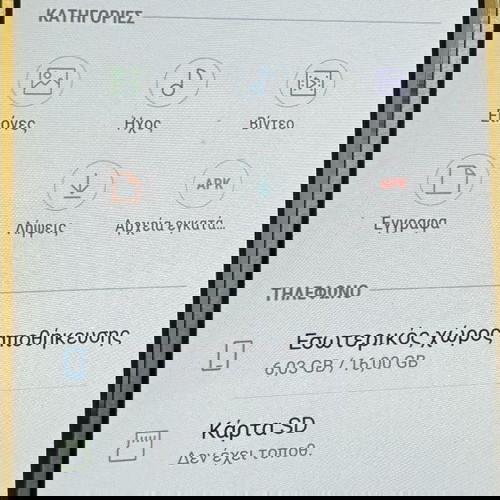 ΚΑΤΗΓΟΡΙΕΣ
Εικόνες Ήχος Βίντεο
APK
Λήψεις Αρχεία εγκατά... Έγγραφα
ΤΗΛΕΦΩΝΟ
Εσωτερικός χώρος αποθήκευσης
6,03 GB / 16,00 GB
Κάρτα SD
Δεν έχει τοποθ.